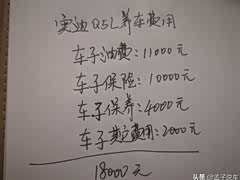 奥迪Q5L养车费用
车子油费:11000元
车子保险:10000元
车子保养:4000元
车子其它费用:2000元
18000元
头条 @孟子说车